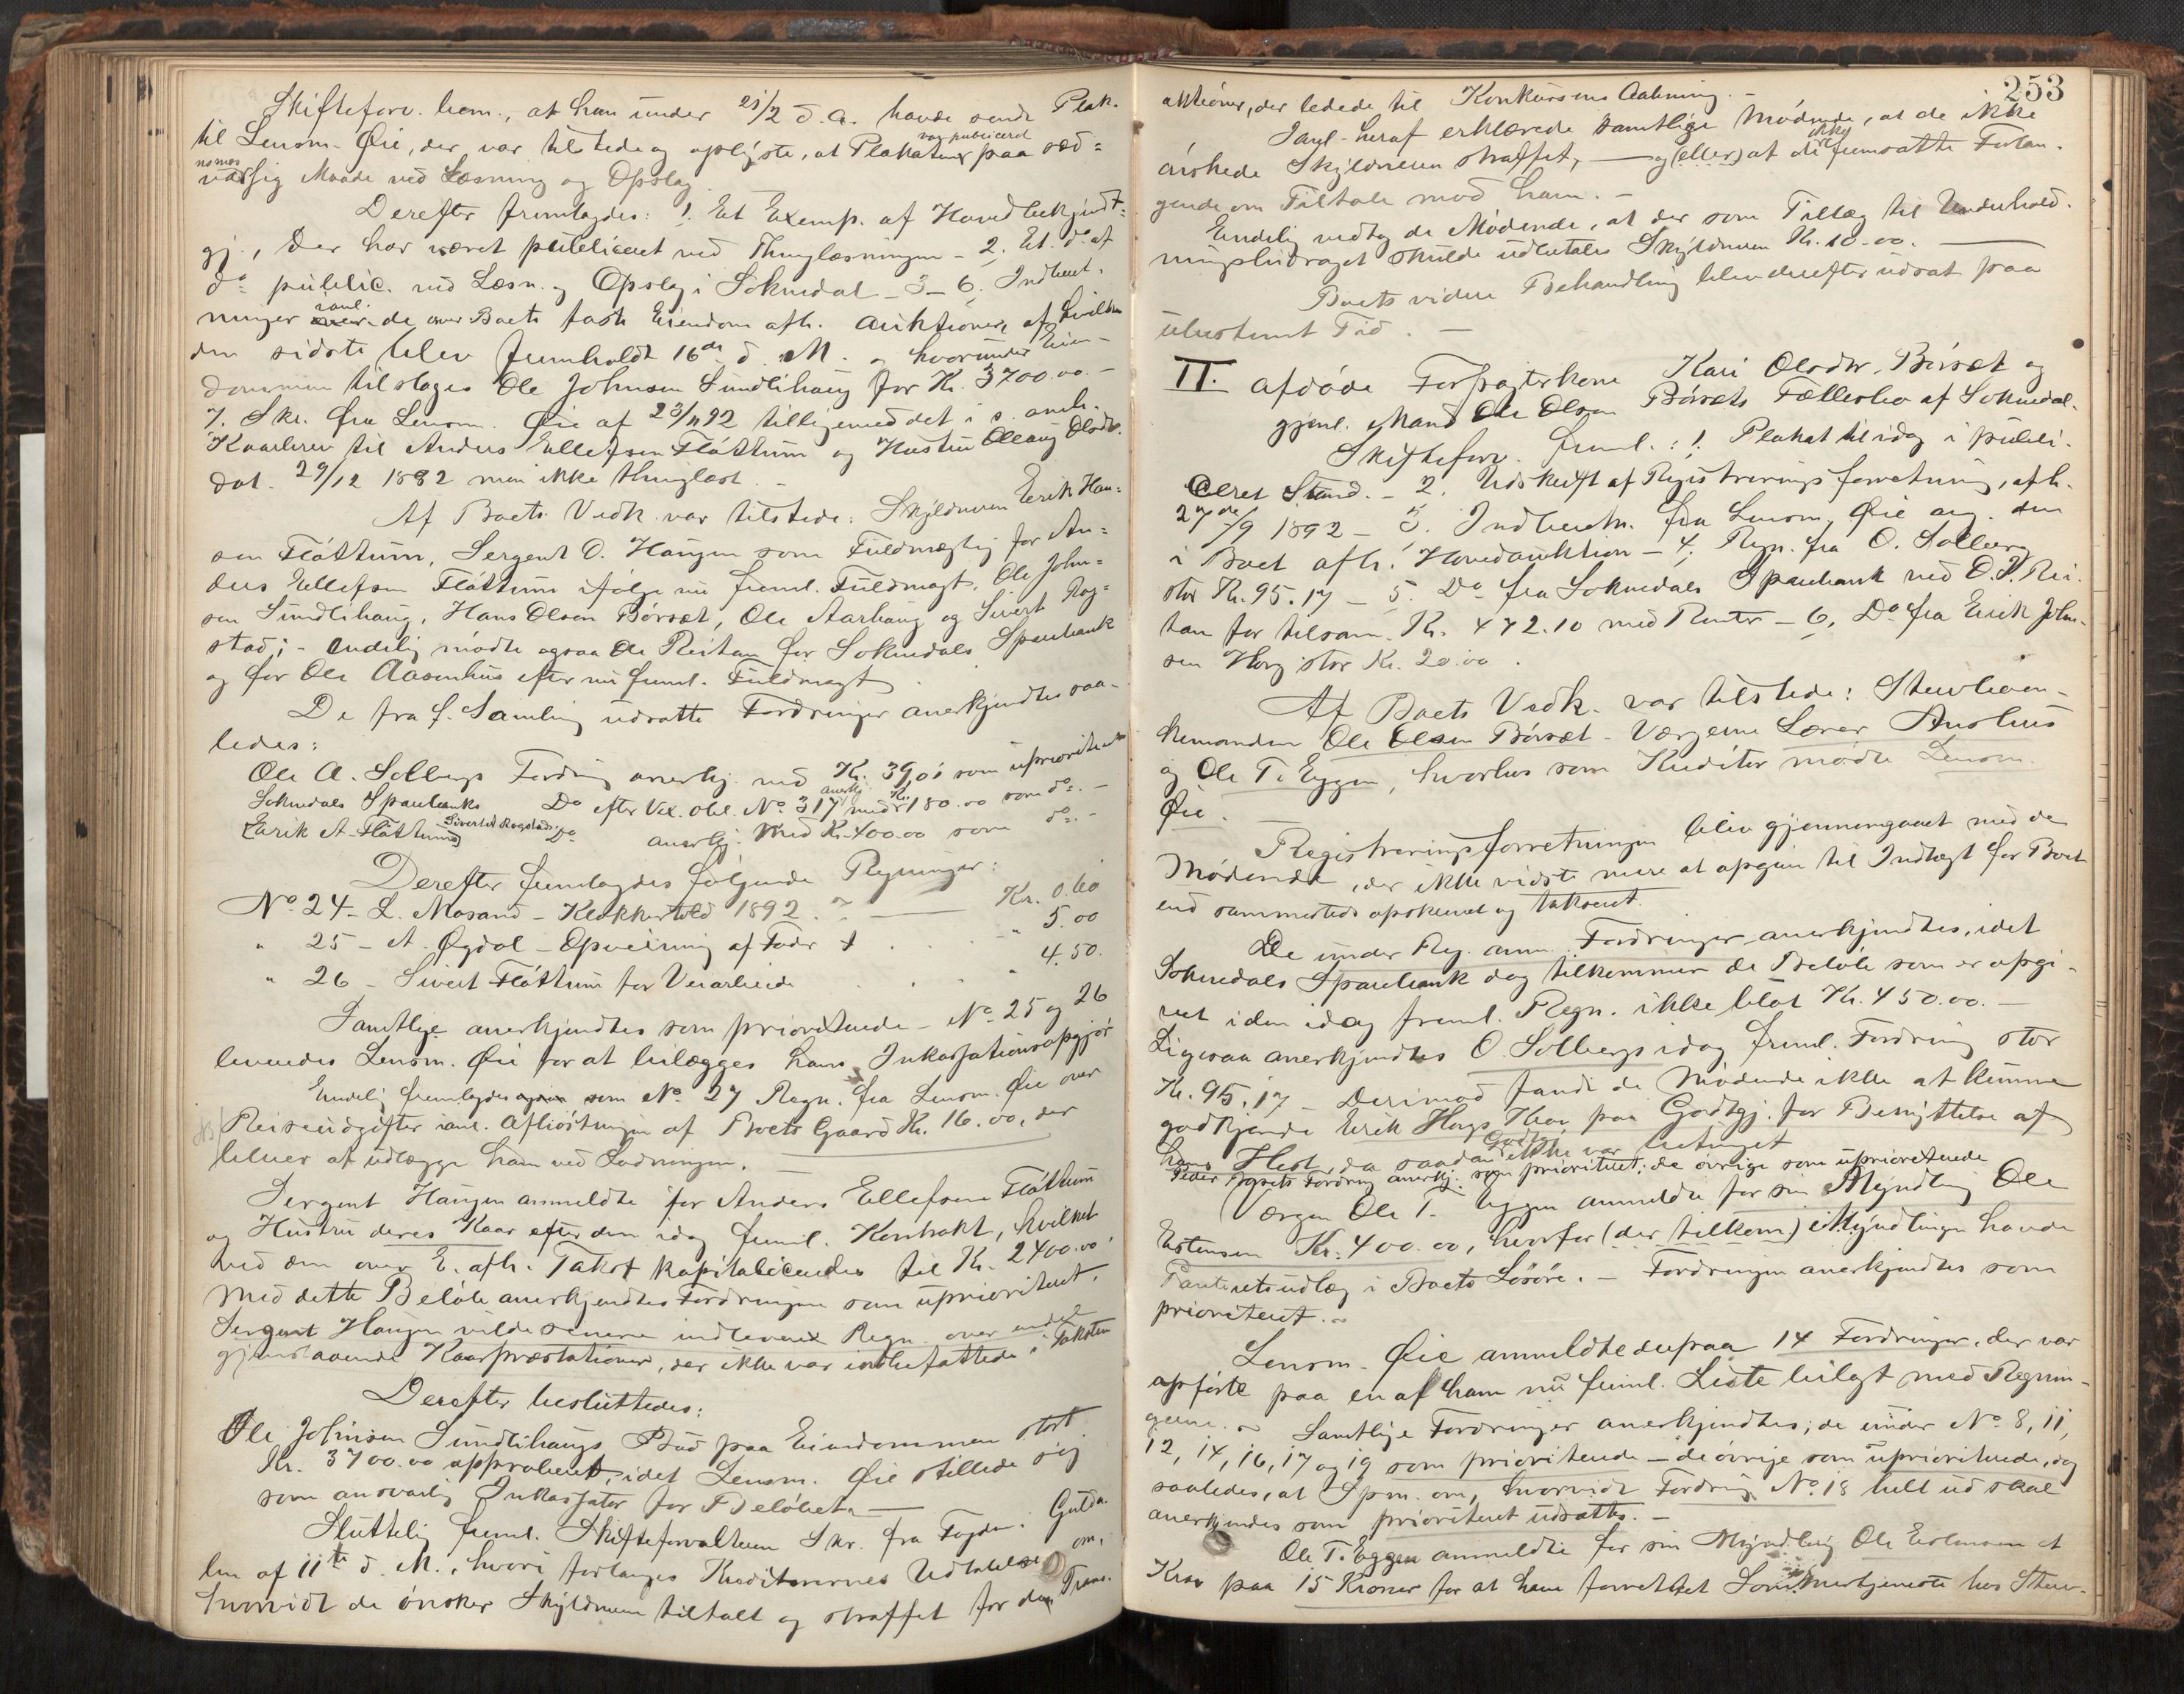 Skifteforv. bem., at han under 21/2 d. A. havde sendt Plak.
til Lensm. Øie, der var tilstede og oplyste, at Plakaten var publiceret paa sæd=
vansmæssig Maade ved Læsning og Opslag.
Derefter fremlagdes: 1. Et Exemp. af Hovedbekjendt=
gj., der har været publiceret ved Thinglæsningen - 2. Et do af
do public. ved Læsn. og Opslag i Soknedal - 3-6. Indberet-
ninger iaul. de over Boets faste Eiendom afh. Auktioner, af hvilke
den sidste blev fremholdt 16de d. M. og hvorunder Eien-
dommen tilsloges Ole Johnsen Sundlihaug for Kr. 3700.00. -
7. Skr. fra Lensm. Øie af 23/11 92 tilligemed det i s. omh.
Kaarbrev til Anders Ellefsen Fløttum og Hustru Olaug Olsdr.
dat. 29/12 1882 men ikke thinglæst. -
Af Boets Vedk. var tilstede: Skyldneren Erik Han=
sen Fløttum, Sergent O. Haugen som Fuldmægtig for An=
ders Ellefsen Fløttum ifølge nu freml. Fuldmagt, Ole John=
sen Sundlihaug, Hans Olsen Børset, Ole Aarhaug og Sivert Rog=
stad; - endelig mødte ogsaa Ole Reitan for Soknedals Sparebank
og for Ole Aasenhus efter nu freml. Fuldmagt.
De fra f. Samling udsatte Fordringer anerkjendtes saa-
ledes:
Ole A. Solbergs Fordring anerkj. med Kr. 39,01 som uprioriteret
Soknedals Sparebanks Do efter Vex. obl. No 317 anerkj. med Kr. 180.00 som do. -
(Erik A. Fløttums) Sivert Rogstads Do anerkj. med Kr. 400.00 som do. -
Derefter fremlagdes følgende Regninger:
No 24 - L. Mosand - Klokkertold 1892. Kr. 0.60
" 25 - A. Øgdal - Opveining af Foder " 5.00
" 26 - Sivert Fløttum for Vinarbeide " 4.50.
Samtlige anerkjendtes som prioriterede - No 25 og 26
leveredes Lensm. Øie for at bilægges hans Inkassationsopgjør
Endelig fremlagdes som No 27 Regn. fra Lensm. Øie over
Reiseudgifter iaul. Afløsningen af Boets Gaard Kr. 16.00, der
bliver at udlægge ham ved Lodningen.
Sergent Haugen anmeldte for Anders Ellefsen Fløttum
og Hustru deres Kaar efter den idag freml. Kontrakt, hvilket
ved den over E. afh. Takst kapitaliceredes til Kr. 2400.00.
Med dette Beløb anerkjendtes Fordringen som uprioriteret.
Sergent Haugen vilde senere indlevere Regn. over endel
gjenstaaende Kaarpræstationer, der ikke var indbefattede i Taksten
Derefter besluttedes:
Ole Johnsen Sundlihaugs Bud paa Eiendommen stort
Kr. 3700.00 approberet, idet Lensm. Øie stillede sig
som ansvarlig Inkassator for Beløbet. -
Sluttelig freml. Skifteforvalteren Skr. fra Fogden i Gulda-
len af 11te d. M., hvori forlanges Kreditorernes Udtalelse om,
hvorvidt de ønsker Skyldneren tiltalt og straffet for de Trans-
253
aktioner, der ledede til Konkursens Aabning. -
Iaul. heraf erklærede samtlige Mødende, at de ikke
ønskede Skyldneren straffet, - og (eller) at de ikke fremsatte Forlan-
gende om Tiltale mod ham. -
Endelig vedtog de Mødende, at der som Tillæg til Underhold-
ningsbidraget skulde udbetales Skyldneren Kr. 10.00. -
Boets videre Behandling blev derefter udsat paa
ubestemt Tid. -
II. afdøde Forpagterkone Kari Olsdtr. Børset og
gjenl. Mand Ole Olsen Børsets Fællesbo af Soknedal.
Skifteforv. freml.: 1. Plakat til idag i publi-
ceret Stand. - 2. Udskrift af Registreringsforretning, afh.
27de/9 1892 - 3. Indberetn. fra Lensm. Øie ang. den
i Boet afh. Hovedauktion - 4. Regn. fra O. Solberg
stor Kr. 95.17 - 5. Do fra Soknedals Sparebank ved O. J. Rei-
tan for tilsam. Kr. 472.10 med Renter - 6. Do fra Erik John-
sen Horg stor Kr. 20.00.
Af Boets Vedk. var tilstede: Stervboen-
kemanden Ole Olsen Børset - Værgerne Lærer Aushus
og Ole T. Eggen, hvorhos som Kreditor mødte Lensm.
Øie.
Registreringsforretningen blev gjennemgaaet med de
Mødende, der ikke vidste mere at opgive til Indtægt for Boet
end sammesteds opskrevet og takseret.
De under Reg. anm. Fordringer anerkjendtes, idet
Soknedals Sparebank dog tilkommer de Beløb som er opgi-
vet i den idag freml. Regn. ikke blot Kr. 450.00. -
Ligesaa anerkjendtes O. Solbergs idag freml. Fordring stor
Kr. 95.17 - Derimod fandt de Mødende ikke at kunne
godkjende Erik Horgs Krav paa Godtgj. for Benyttelse af
hans Hest, da saadan Godtgj. ikke var betinget
Peder Børsets Fordring anerkj. som prioriteret; de øvrige som uprioriterede
Værgen Ole T. Eggen anmeldte for sin Myndling Ole
Estensen Kr. 400.00, hvorfor (der tilkom) Myndlingen havde
Panteretsudlæg i Boets Løsøre. - Fordringen anerkjendtes som
prioriteret. -
Lensm. Øie anmeldte derpaa 14 Fordringer, der var
opførte paa en af ham nu freml. Liste bilagt med Regnin-
gerne. - Samtlige Fordringer anerkjendtes; de under No 8, 11,
12, 14, 16, 17 og 19 som prioriterede - de øvrige som uprioriterede, dog
saaledes, at Spm. om, hvorvidt Fordring No 18 helt ud skal
anerkjendes som prioriteret udsattes. -
Ole T. Eggen anmeldte for sin Myndling Ole Estensen et
Krav paa 15 Kroner for at have forrettet Sommertjeneste hos Sterv-